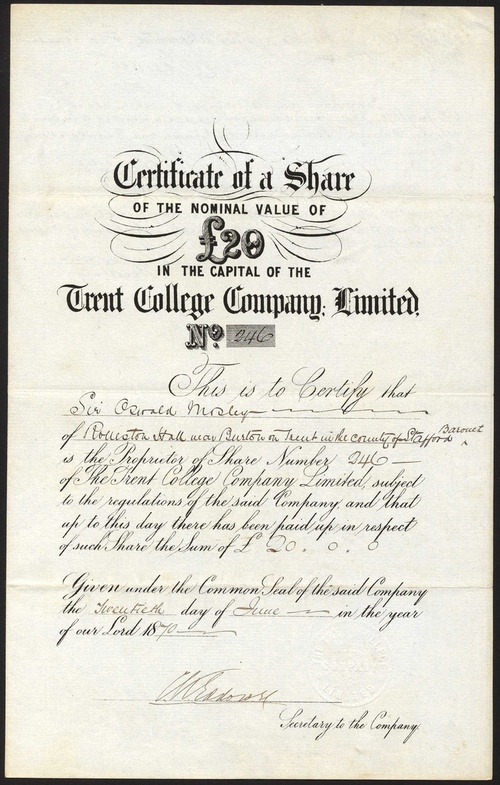 Certificate of a Share
OF THE NOMINAL VALUE OF
£20
IN THE CAPITAL OF THE
Trent College Company, Limited,
No. 246
This is to Certify that
Sir Oswald Mosley
of Rolleston Hall near Burton on Trent in the county of Stafford Baronet
is the Proprietor of Share Number 246
of The Trent College Company Limited, subject
to the regulations of the said Company, and that
up to this day there has been paid up in respect
of such Share the Sum of £ 20 . 0 . 0
Given under the Common Seal of the said Company
the Twentieth day of June in the year
of our Lord 1870
Secretary to the Company.